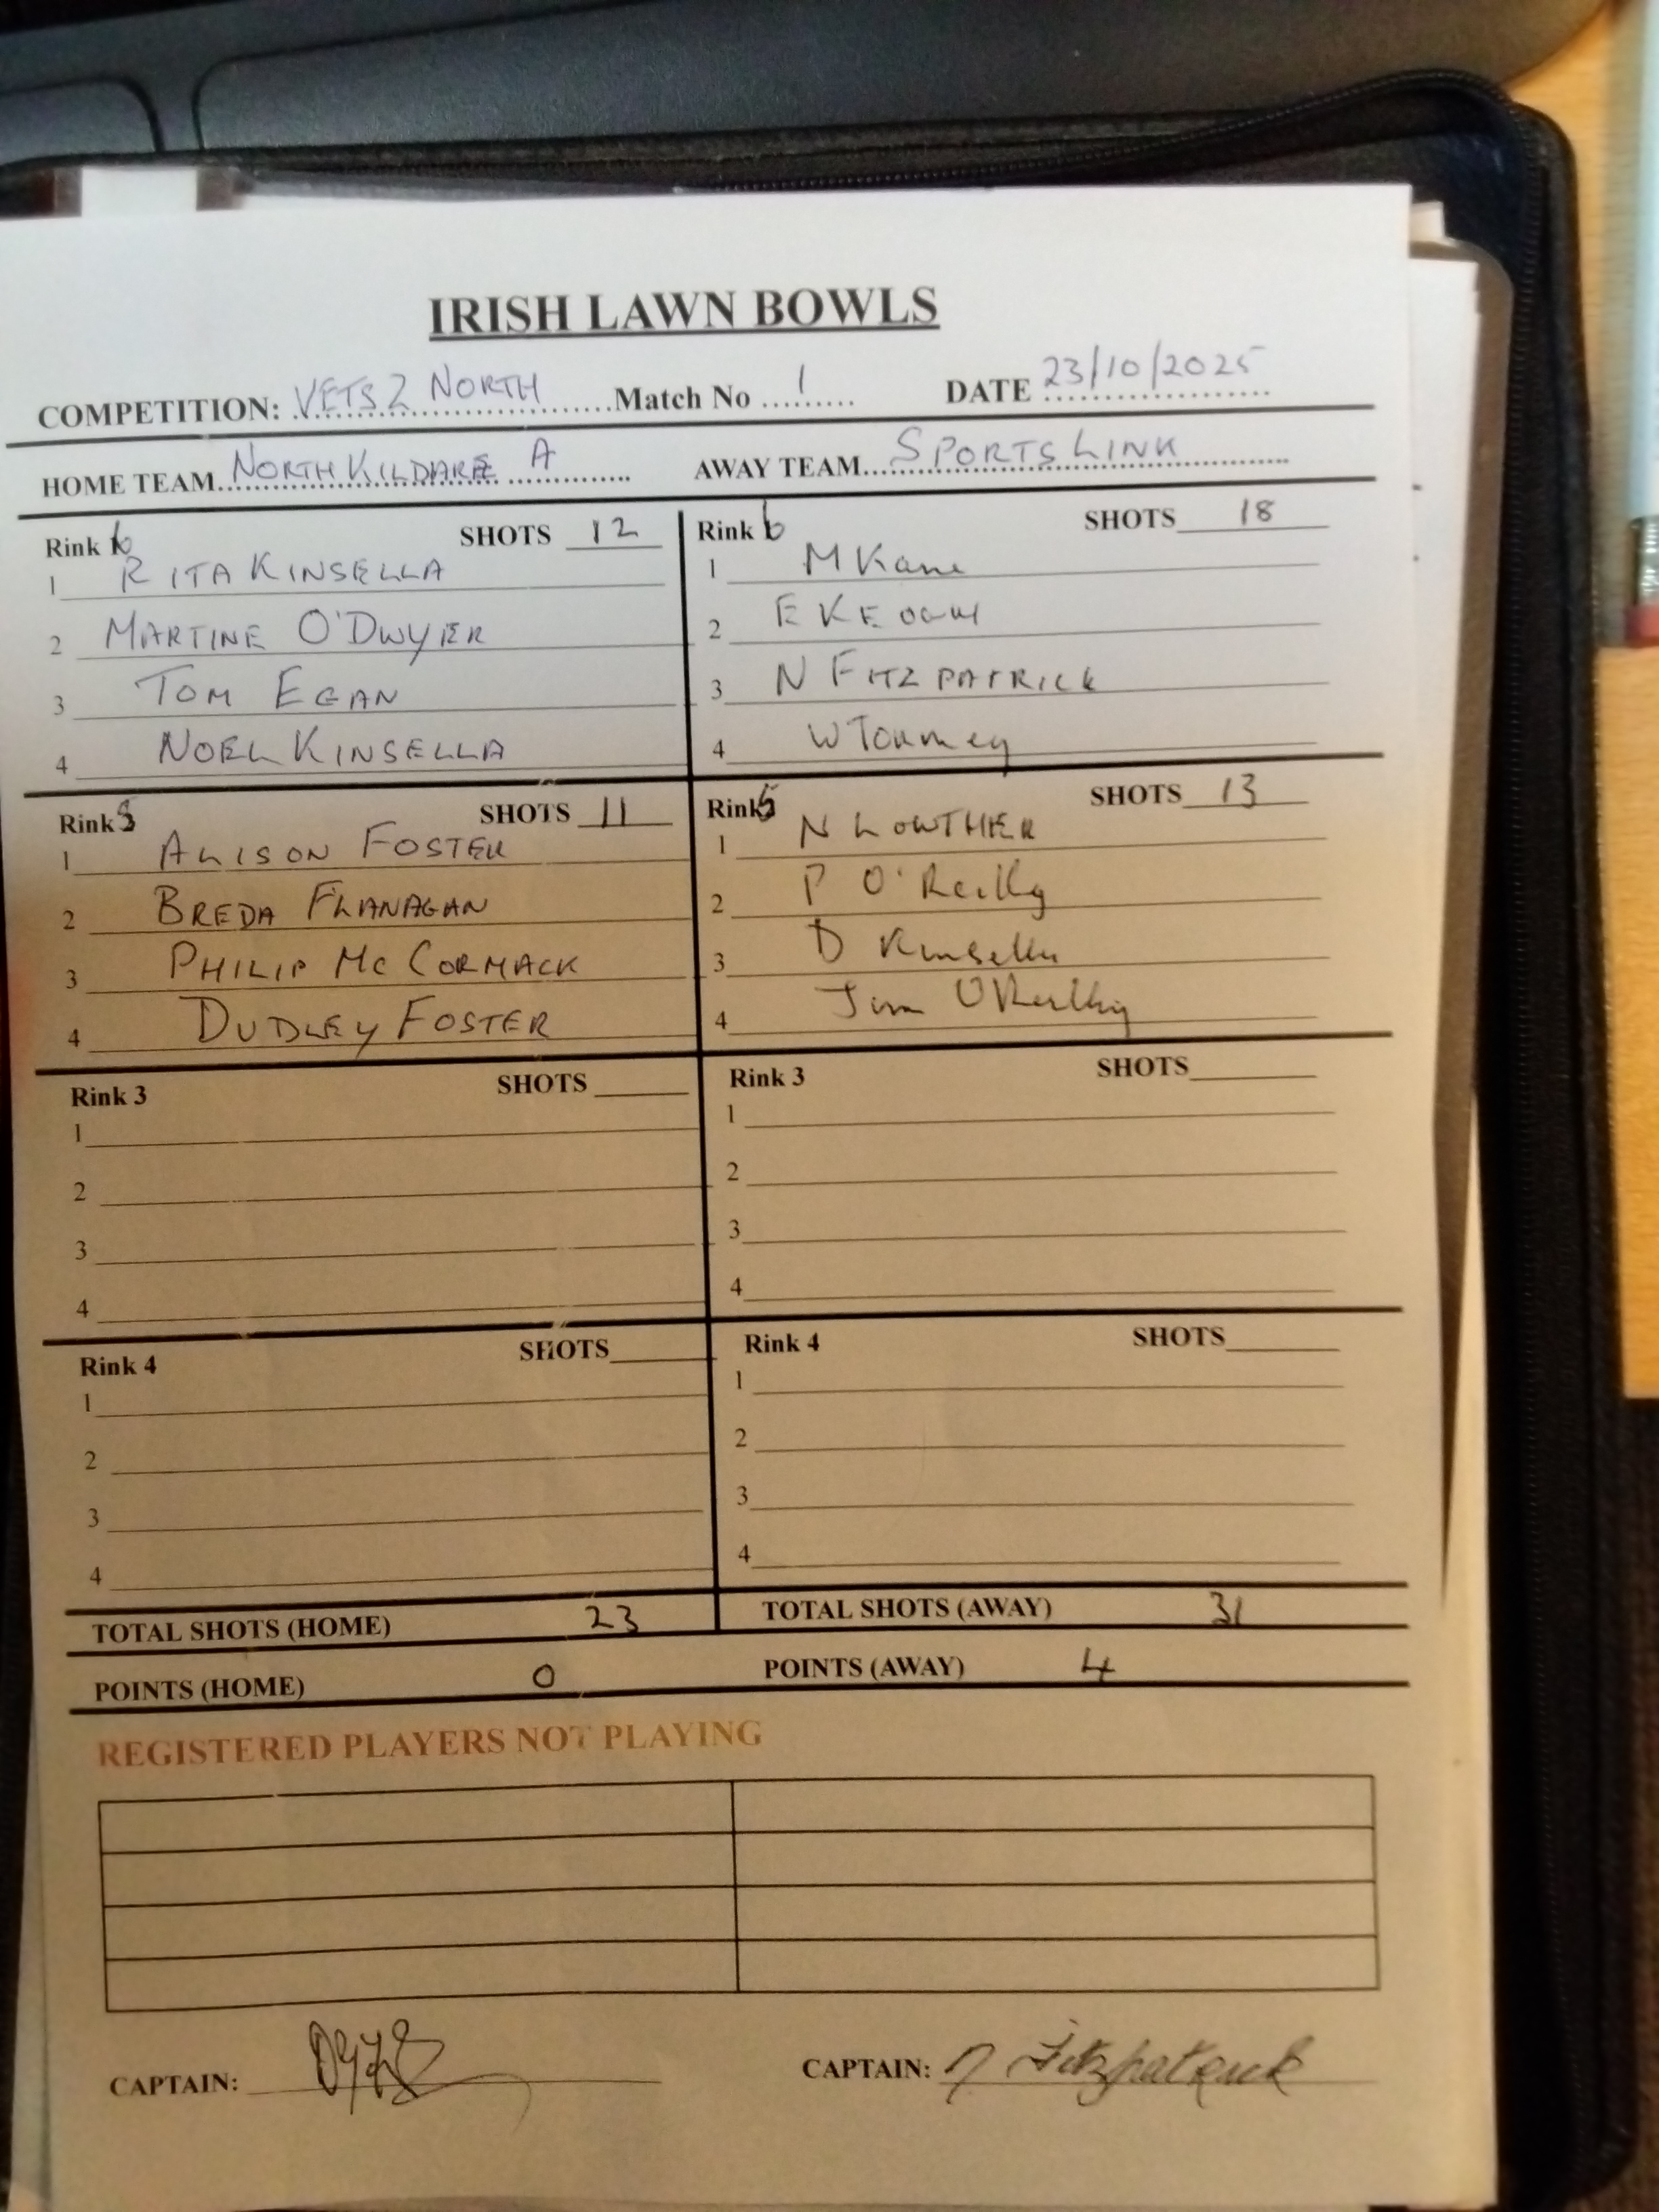 IRISH LAWN BOWLS
COMPETITION: VETS 2 NORTH Match No 1 DATE 23/10/2025
HOME TEAM NORTH KILDARE A AWAY TEAM SPORTSLINK
Rink 6 SHOTS 12
1 RITA KINSELLA
2 MARTINE O'DWYER
3 TOM EGAN
4 NOEL KINSELLA
Rink 6 SHOTS 18
1 M Kane
2 E KEOGH
3 N FITZPATRICK
4 W Tormey
Rink 5 SHOTS 11
1 ALISON FOSTER
2 BREDA FLANAGAN
3 PHILIP Mc CORMACK
4 DUDLEY FOSTER
Rink 5 SHOTS 13
1 N LOWTHER
2 P O'Reilly
3 D Kinsella
4 Jim O'Reilly
Rink 3 SHOTS
1
2
3
4
Rink 3 SHOTS
1
2
3
4
Rink 4 SHOTS
1
2
3
4
Rink 4 SHOTS
1
2
3
4
TOTAL SHOTS (HOME) 23 TOTAL SHOTS (AWAY) 31
POINTS (HOME) 0 POINTS (AWAY) 4
REGISTERED PLAYERS NOT PLAYING
CAPTAIN: CAPTAIN: N Fitzpatrick